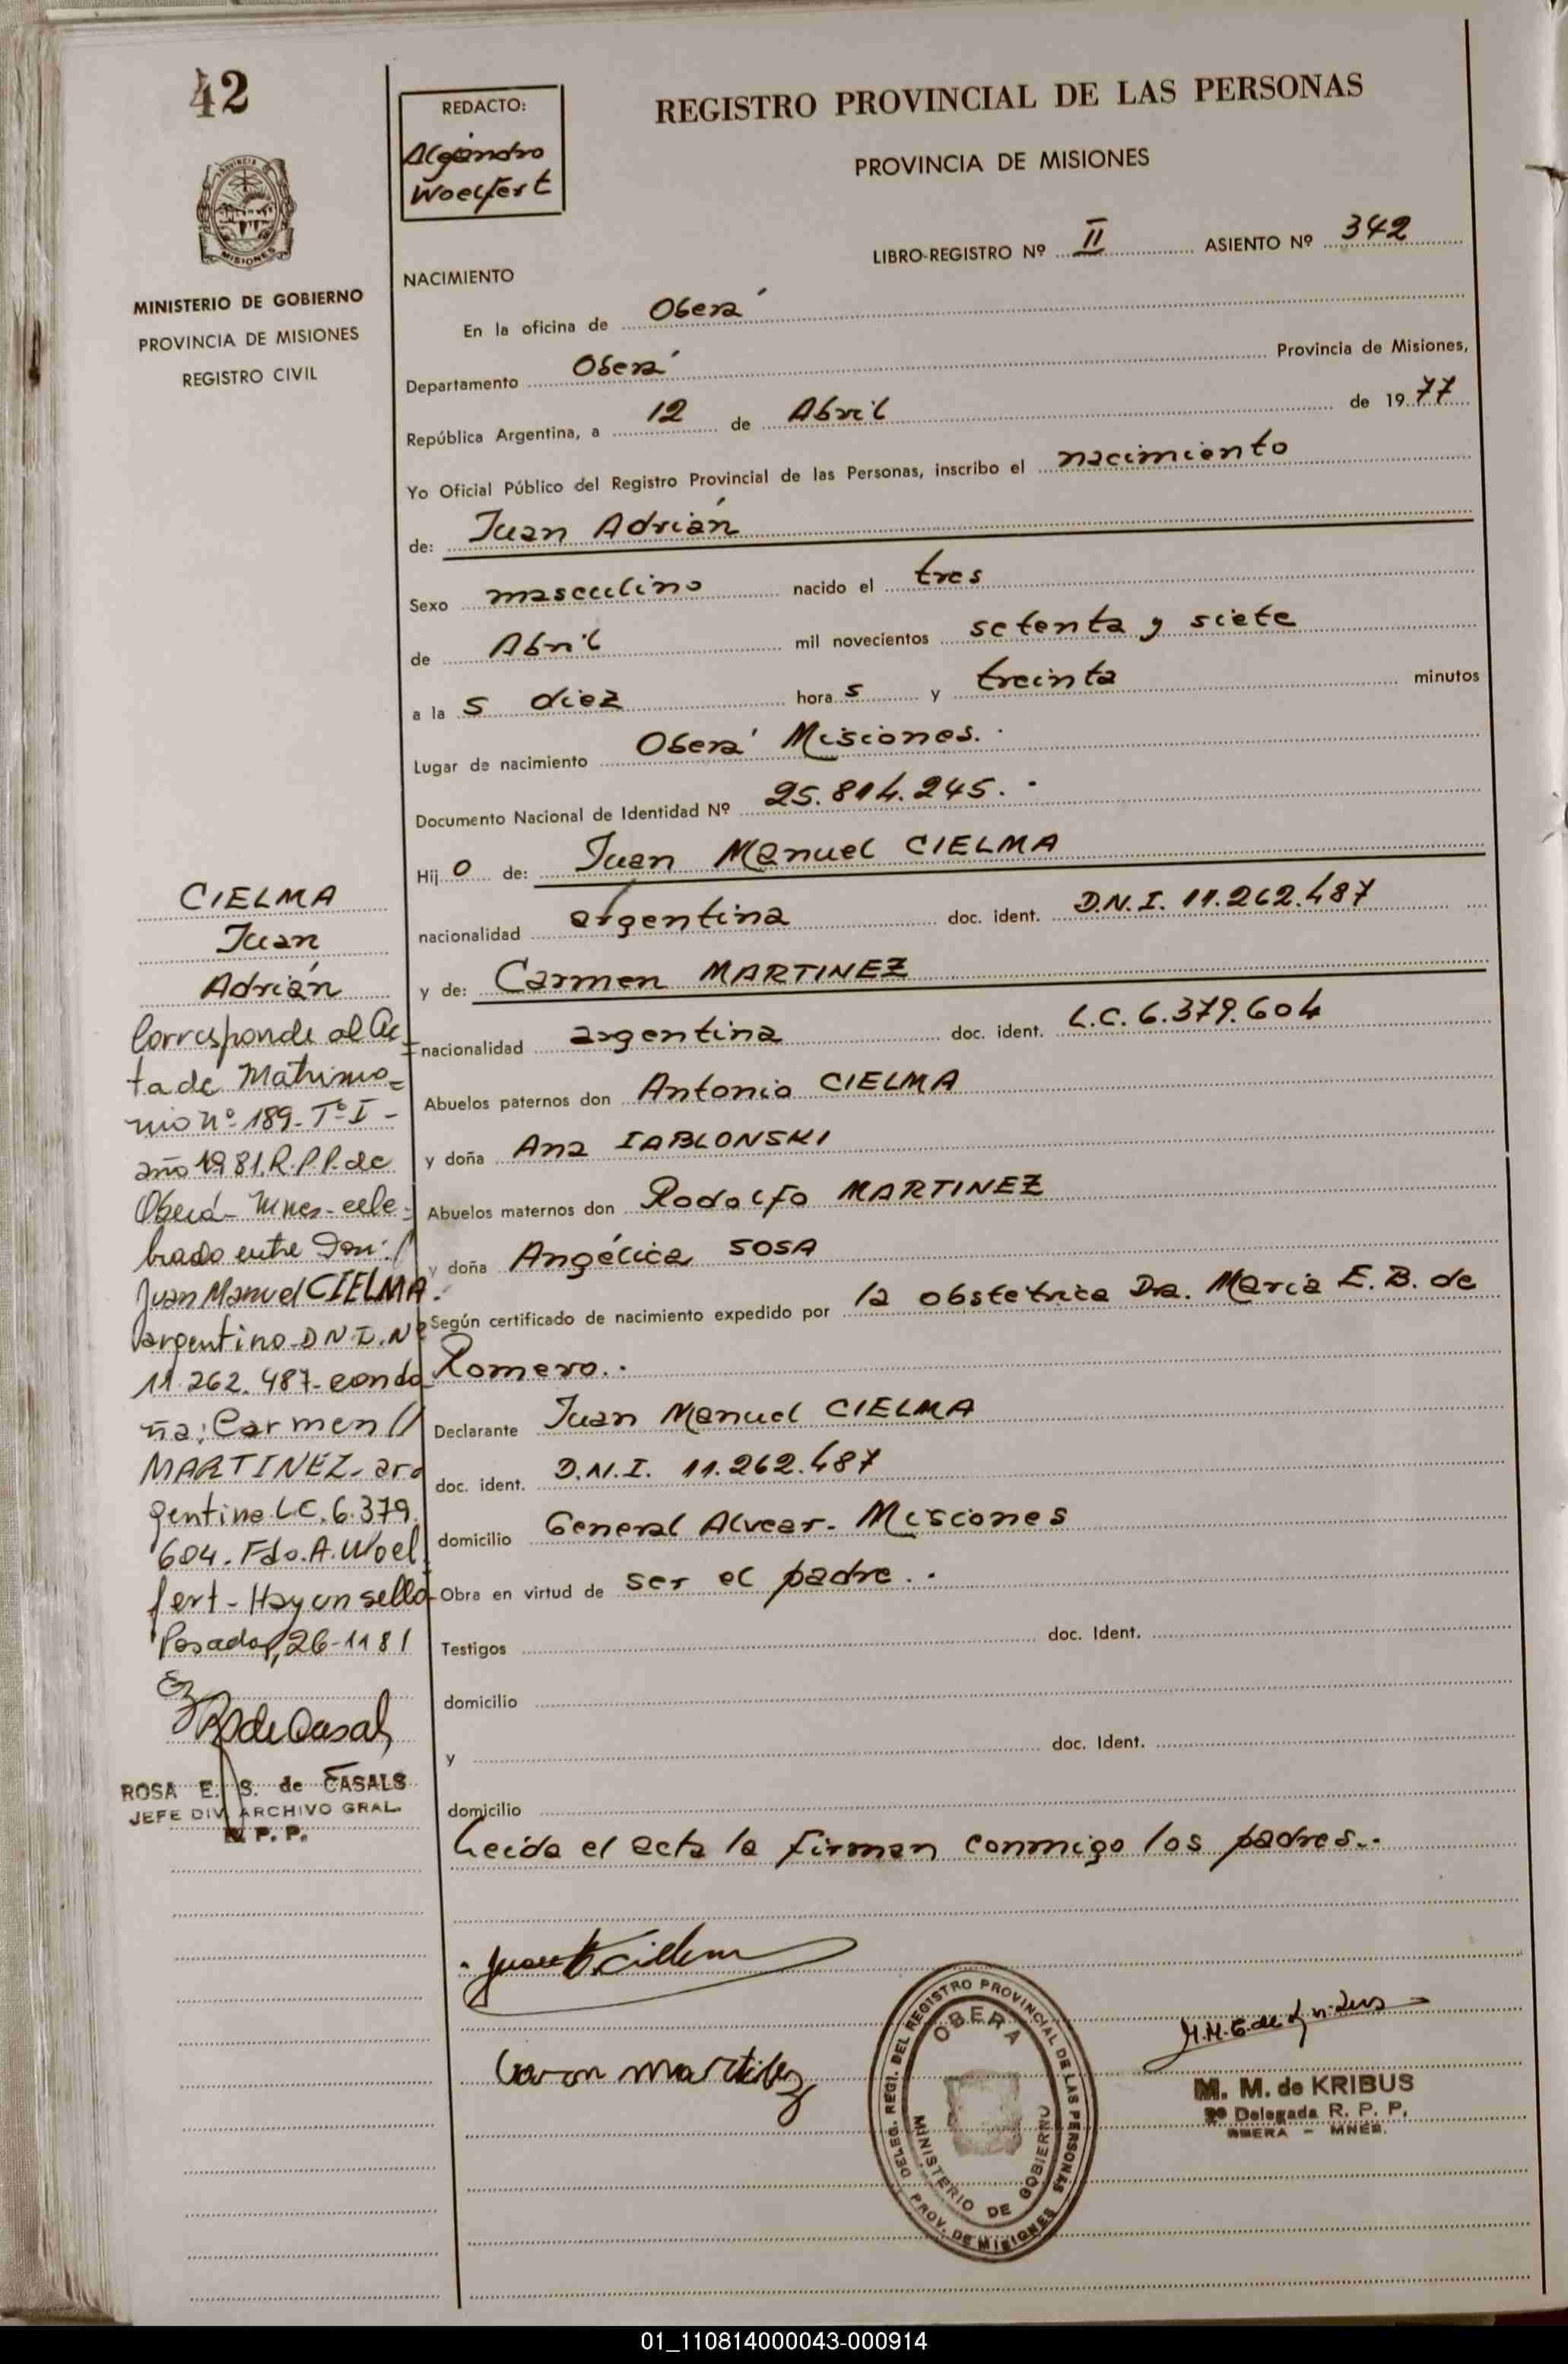 42
PROVINCIA
MISIONES
MINISTERIO DE GOBIERNO
PROVINCIA DE MISIONES
REGISTRO CIVIL
REDACTO:
Alejandro
Woelfert
REGISTRO PROVINCIAL DE LAS PERSONAS
PROVINCIA DE MISIONES
LIBRO-REGISTRO Nº II ASIENTO Nº 342
NACIMIENTO
En la oficina de Oberá
Departamento Oberá Provincia de Misiones,
República Argentina, a 12 de Abril de 1977
Yo Oficial Público del Registro Provincial de las Personas, inscribo el nacimiento
de: Juan Adrián
Sexo masculino nacido el tres
de Abril mil novecientos setenta y siete
a la s diez hora s y treinta minutos
Lugar de nacimiento Oberá Misiones.
Documento Nacional de Identidad Nº 25.814.245.
Hij o de: Juan Manuel CIELMA
nacionalidad argentina doc. ident. D.N.I. 11.262.487
y de: Carmen MARTINEZ
nacionalidad argentina doc. ident. L.C. 6.379.604
Abuelos paternos don Antonio CIELMA
y doña Ana IABLONSKI
Abuelos maternos don Rodolfo MARTINEZ
y doña Angélica SOSA
Según certificado de nacimiento expedido por la obstétrica Dra. María E. B. de
Romero.
Declarante Juan Manuel CIELMA
doc. ident. D.N.I. 11.262.487
domicilio General Alvear - Misiones
Obra en virtud de ser el padre.
Testigos doc. Ident.
domicilio
y doc. Ident.
domicilio
Leida el acta la firman conmigo los padres.
CIELMA
Juan
Adrián
Corresponde al Ac
ta de Matrimo=
nio nº 189- Tº I -
año 1981. R.P.P. de
Oberá - Mnes - cele=
brado entre Don:
Juan Manuel CIELMA.
argentino - D N I. Nº
11.262.487- con do
ña: Carmen
MARTINEZ- ar
gentina L C. 6.379.
604. Fdo. A. Woel
fert - Hay un sello
Posadas, 26-11 81
ROSA E. S. de CASALS
JEFE DIV. ARCHIVO GRAL.
R. P. P.
DELEG. REGI. DEL REGISTRO PROVINCIAL DE LAS PERSONAS
OBERA
MINISTERIO DE GOBIERNO
PROV. DE MISIONES
M. M. de KRIBUS
Delegada R. P. P.
OBERA - MNES.
01_110814000043-000914